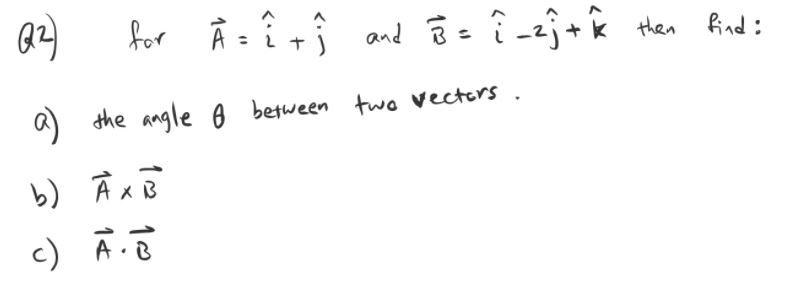 Q2) for A⃗ = î + ĵ and B⃗ = î -2ĵ + k̂ then find :
a) the angle θ between two vectors .
b) A⃗ x B⃗
c) A⃗ . B⃗